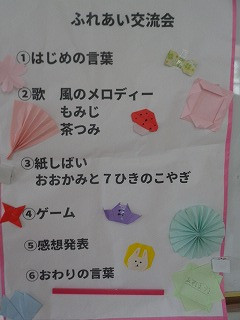 ふれあい交流会
①はじめの言葉
②歌　風のメロディー
もみじ
茶つみ
③紙しばい
おおかみと７ひきのこやぎ
④ゲーム
⑤感想発表
⑥おわりの言葉